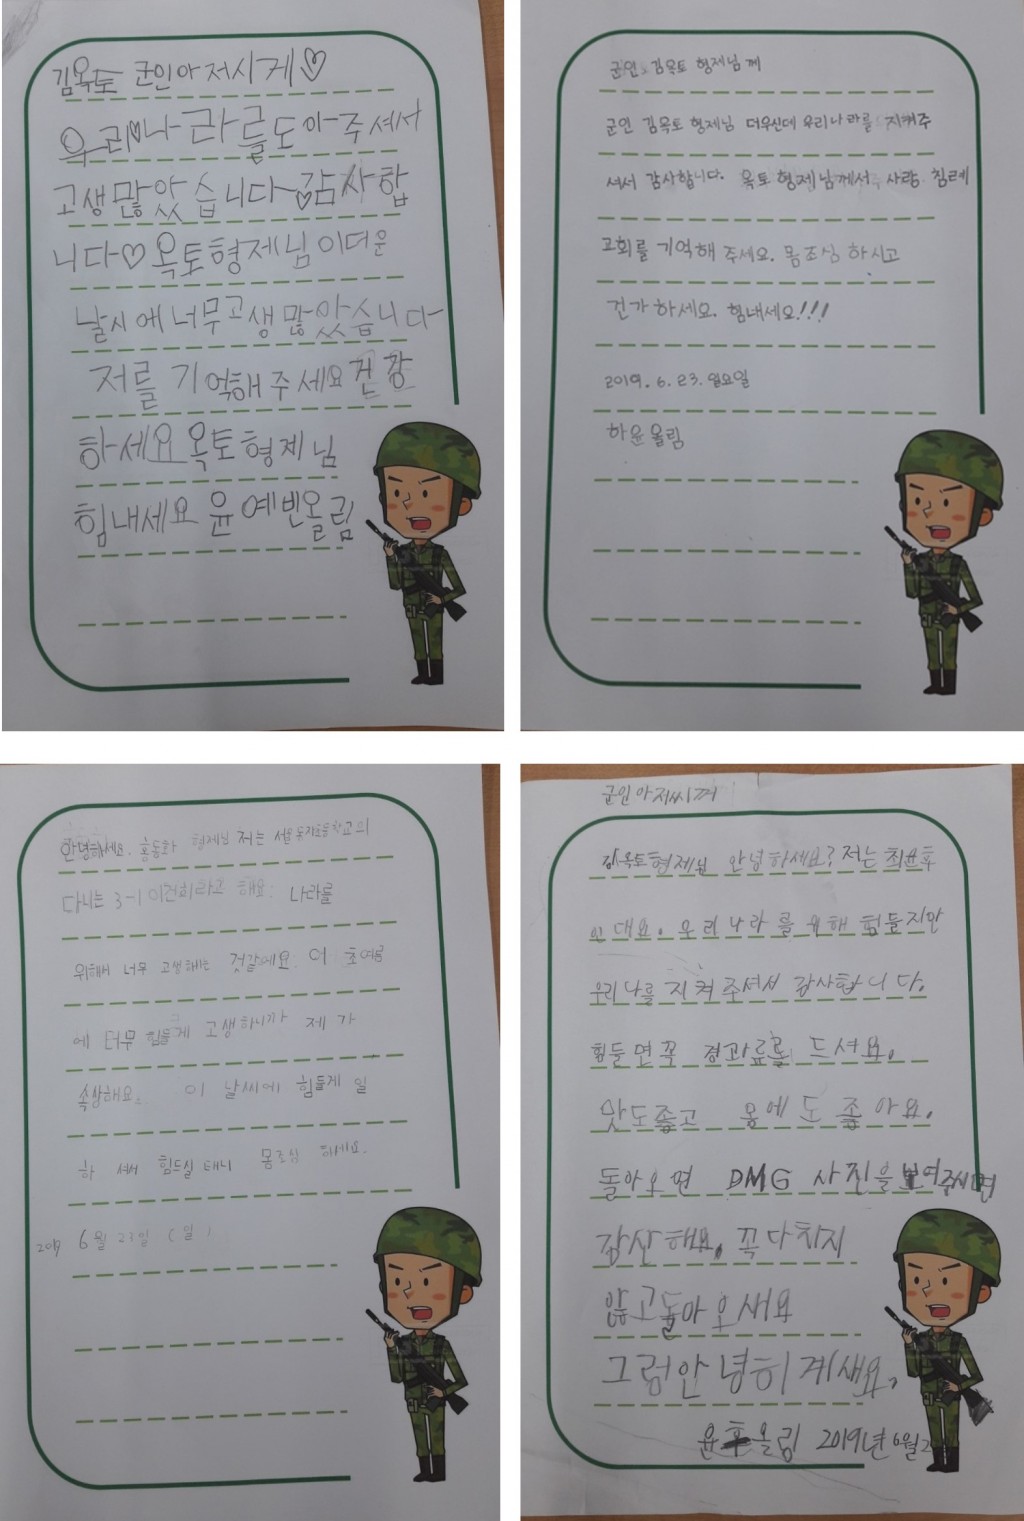 김옥토 군인아저시게♡
우리♡나라를도아주셔서
고생많았습니다♡감사합
니다♡옥토형제님이더운
날시에너무고생많았습니다
저를기억해주세요건강
하세요옥토형제님
힘내세요윤예빈올림
군인 김옥토 형제님께
군인 김옥토 형제님 더우신데 우리나라를 지켜주
셔서 감사합니다. 옥토형제님께서 사랑 침례
교회를 기억해 주세요. 몸조심 하시고
건가하세요. 힘내세요!!!
2019. 6. 23. 일요일
하윤올림
안녕하세요. 홍동화 형제님 저는 서울 동자초등학교의
다니는 3-1 이건희라고 해요. 나라를
위해서 너무 고생하는 것같에요. 이 초여름
에 터무 힘들게 고생하니까 제가
속상해요. 이 날씨에 힘들게 일
하셔서 힘드실태니 몸조심 하세요.
2019 6월 23일 (일)
군인아저씨께
김옥토형제님 안녕하세요? 저는 최윤후
인대요. 우리나라를 위해 힘들지만
우리나를 지켜주셔서 감사합니다.
힘들면꼭 경과류를 드셔요.
맛도좋고 몸에도 좋아요.
돌아오면 DMG 사진을 보여주시면
감산해요. 꼭다치지
않고돌아오새요
그럼안녕히계새요,
윤후올림 2019년 6월